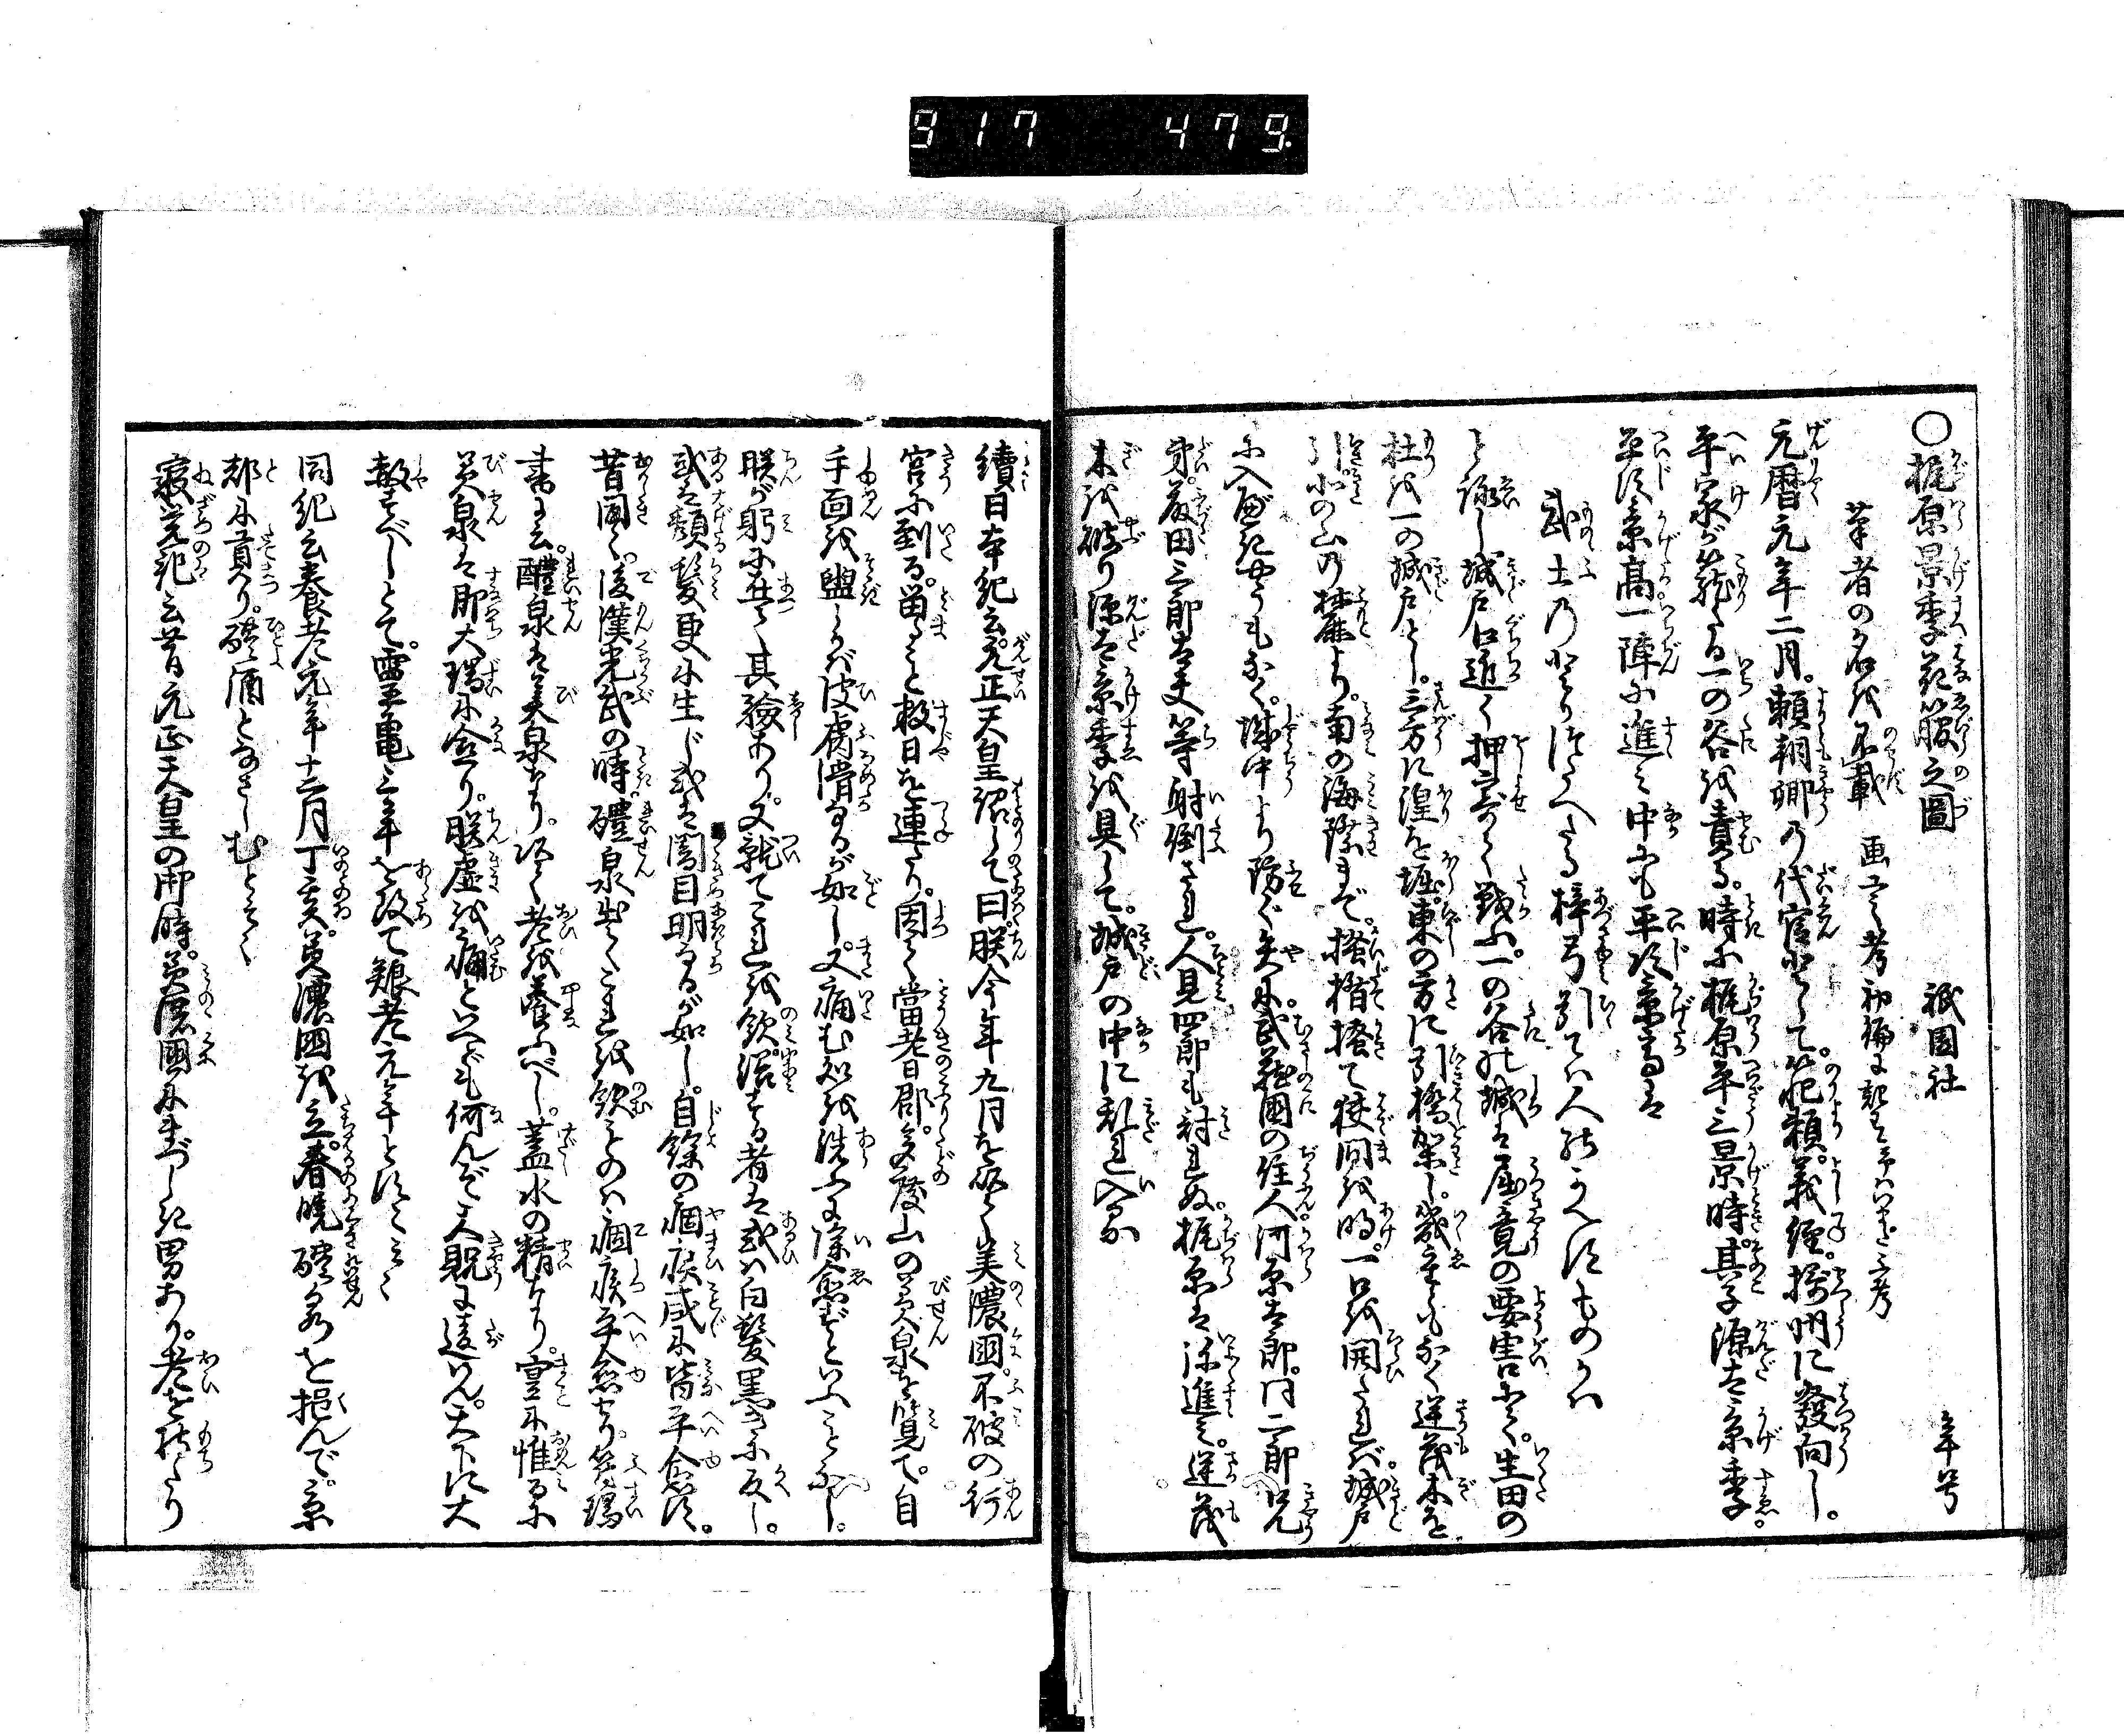 917 479.
○梶原景季箙之圖 祇園社 年号
筆者の名を不載 画之考初編に記す
元暦元年二月。頼朝卿の代官として。範頼。義経。摂州に發向し。
平家が籠たる一の谷を責る。時に梶原平三景時。其子源太景季。
平次景高一陣に進み中にも平次景高は
武士のとりつたへたる梓弓引ては人のかへすものかは
と詠し城戸口近く押寄て戦ふ。一の谷の城は屈竟の要害にて。生田の
杜を一の城戸とし。三方に湟を堀。東の方に引橋架し。逆茂木を
引。北の山の麓より。南の海際まで。掻楯掻て狭間を明。一口を開たれば。城戸
に入べきやうもなく。城中より防ぐ矢に。武蔵國の住人河原太郎。同二郎兄
弟。藤田三郎太夫等射倒され。人見四郎も討れぬ。梶原は弥進み。逆茂
木を破り源太景季を具して。城戸の中に乱れ入か
續日本紀云。元正天皇詔して曰。朕今年九月を以て美濃國。不破の行
宮に到る。留ること数日を連たり。因て當耆郡。多度山の美泉を覧て。自
手面を盥しかば皮膚滑なるが如し。又痛む処を洗ふに除愈ずといふことなし。
朕が躬に在て其驗あり。又就てこれを飲浴する者は或は白髪黒きに反し。
或は頽髪更に生じ或は闇目明なるが如し。自餘の痼疾咸に皆平愈す。
昔聞く。後漢光武の時。醴泉出てこれを飲ものは。痼疾平愈せり。符瑞
書に云。醴泉は美泉なり。以て老を養ふべし。蓋水の精なり。寔に惟るに
美泉は即大瑞に合り。朕虚を痛といへども何んぞ天貺に違はん。天下に大
赦すべしとて。霊亀三年を改て養老元年とすとみえ
同紀云養老元年十二月丁亥。美濃國を立。春暁醴泉を挹んで。京
都に貢り。醴酒となさしむとそ
寝覚記云昔元正天皇の御時。美濃國にまづしき男あり。老を持たり